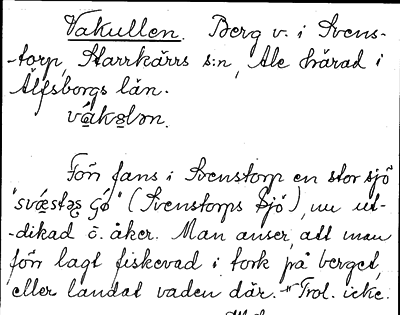 Vakullen. Berg v. i Svens-
-torp, Starrkärrs s:n, Ale härad i
Älfsborgs län.

Förr fans i Svenstorp en stor sjö
(Svenstorps sjö), nu ut-
-dikad o. åker. Man anser, att man
förr lagt fiskevad i tork på berget,
eller landat vaden där. Trol. icke.